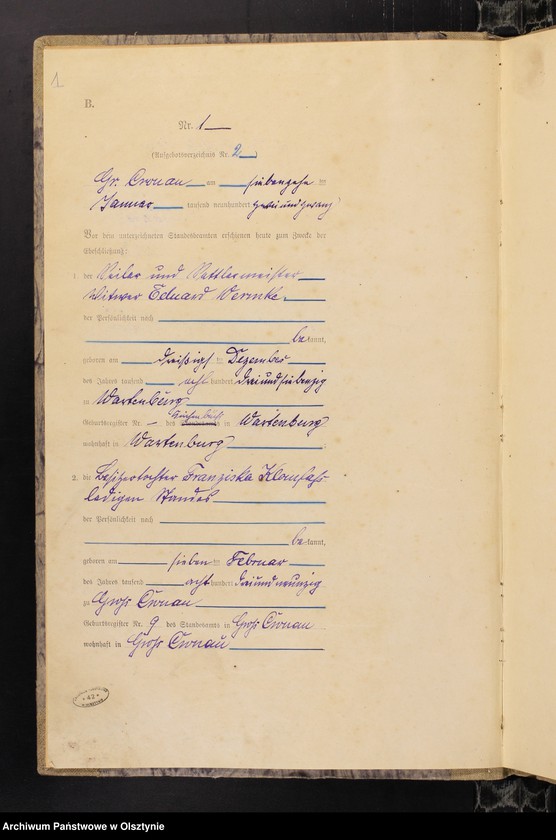 1
B.
Nr. 1
(Aufgebotsverzeichnis Nr. 2)
Gr. Cronau am siebenzehn ten
Januar tausend neunhundert zweiundzwanzig
Vor dem unterzeichneten Standesbeamten erschienen heute zum Zwecke der
Eheschließung:
1. der Seiler und Sattlermeister
Witwer Eduard
der Persönlichkeit nach
be kannt,
geboren am dreißigsten Dezember
des Jahres tausend acht hundert dreiundsiebenzig
zu Wartenburg
Geburtsregister Nr. – des Standesamts Kirchenbuch in Wartenburg
wohnhaft in Wartenburg
2. die Besitzertochter Franziska
ledigen Standes
der Persönlichkeit nach
be kannt,
geboren am sieben ten Februar
des Jahres tausend acht hundert dreiundneunzig
zu Groß Cronau
Geburtsregister Nr. 9 des Standesamts in Groß Cronau
wohnhaft in Groß Cronau
* 42 *
Archiwum Państwowe w Olsztynie